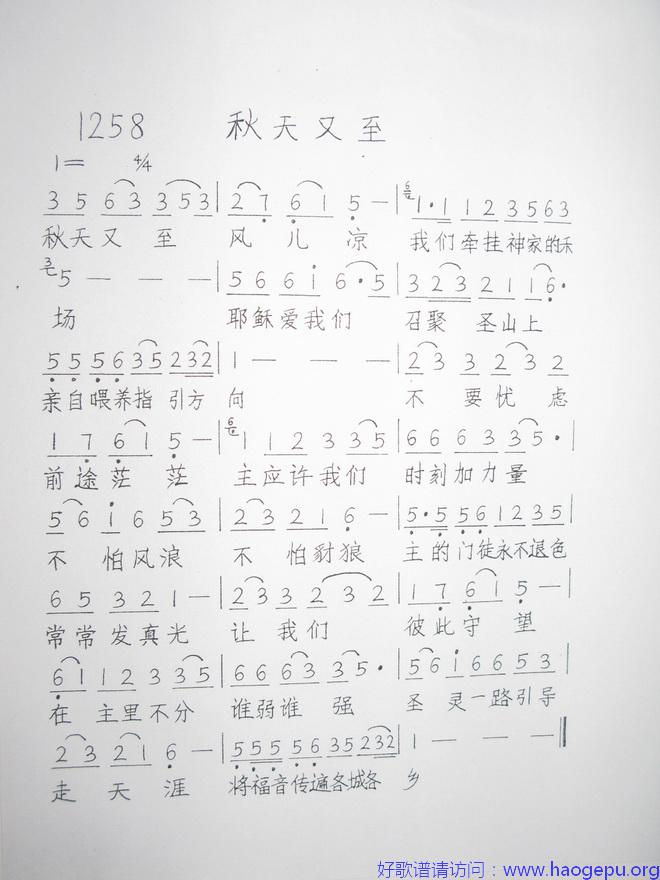 1258 秋天又至
1= 4/4
3 5 6 3 3 5 3 | 2 7 6 1 5 — | 6 1 · 1 1 2 3 5 6 3
秋天又至 风儿凉 我们牵挂神家的禾
3 5 — — — | 5 6 6 1 6 · 5 | 3 2 3 2 1 1 6 ·
场 耶稣爱我们 召聚圣山上
5 5 5 6 3 5 2 3 2 | 1 — — — | 2 3 3 2 3 2
亲自喂养指引方向 不要忧虑
1 7 6 1 5 — | 6 1 1 2 3 3 5 | 6 6 6 3 3 5 · |
前途茫茫 主应许我们 时刻加力量
5 6 1 6 5 3 | 2 3 2 1 6 — | 5 · 5 5 6 1 2 3 5 |
不怕风浪 不怕豺狼 主的门徒永不退色
6 5 3 2 1 — | 2 3 3 2 2 3 2 | 1 7 6 1 5 — |
常常发真光 让我们 彼此守望
6 1 1 2 3 3 5 | 6 6 6 3 3 5 · | 5 6 1 6 6 5 3 |
在主里不分 谁弱谁强 圣灵一路引导
2 3 2 1 6 — | 5 5 5 5 6 3 5 2 3 2 | 1 — — — ‖
走天涯 将福音传遍各城各乡
好歌谱请访问：www.haogepu.org